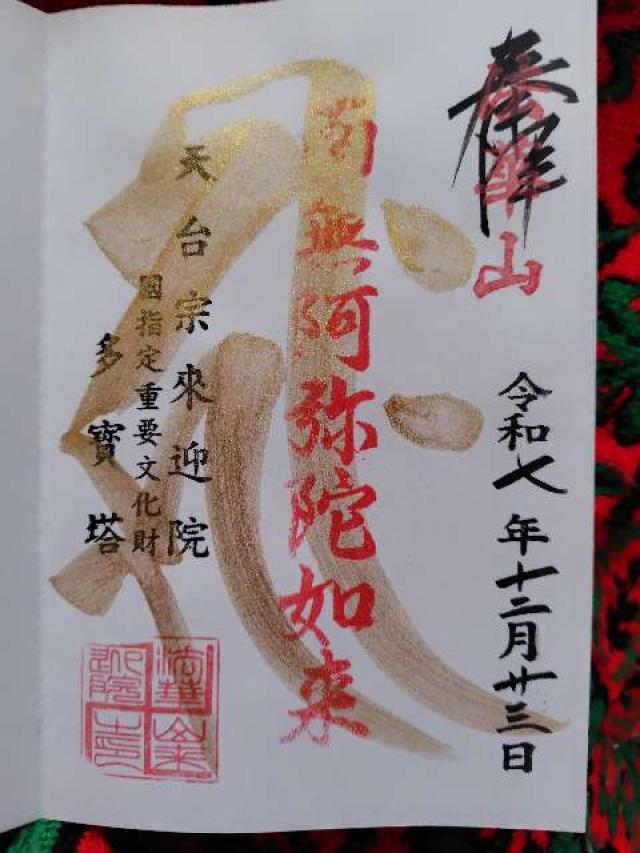 奉拝
華山
令和七年十二月廿三日
南無阿弥陀如来
天台宗來迎院
國指定重要文化財
多寳塔